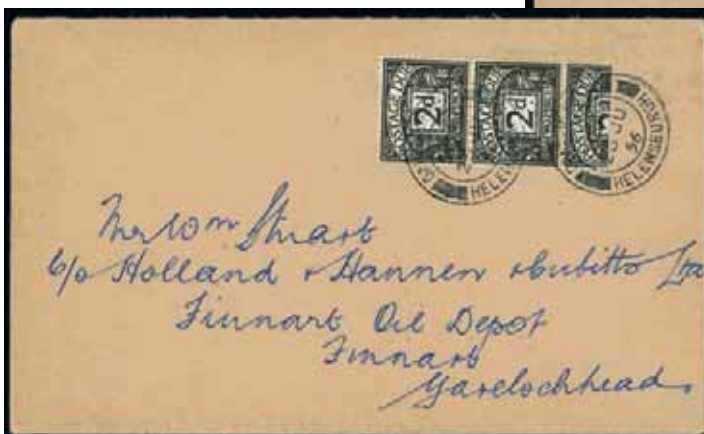 POSTAGE DUE 2d POSTAGE DUE 2d POSTAGE
HELENSBURGH
JU
56
HELENSBURGH
Mr Wm Stuart
c/o Holland & Hannen & Cubitts Ltd
Finnart Oil Depot
Finnart
Garelochhead.